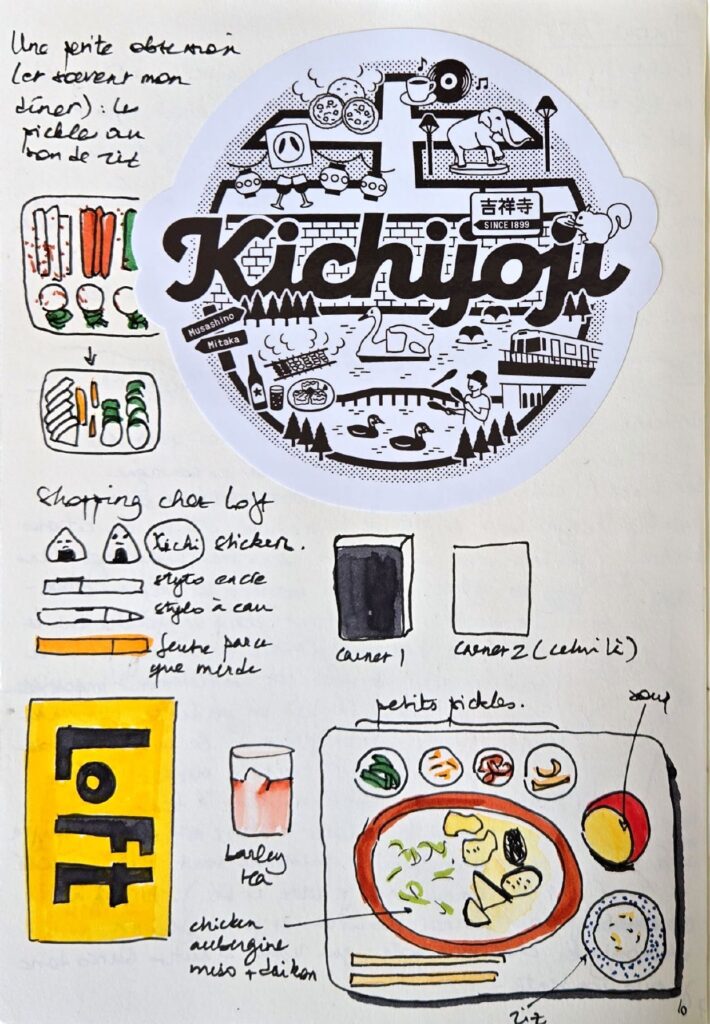 Une petite obsession
(et souvent mon
dîner) : les
pickles au
son de riz
吉祥寺
SINCE 1899
Kichijoji
Musashino
Mitaka
Shopping chez Loft
Kichi stickers.
stylo encre
stylo à eau
feutre parce
que merde
carnet 1
carnet 2 (celui là)
Loft
barley
tea
petits pickles.
soup
chicken
aubergine
miso + daikon
riz
10